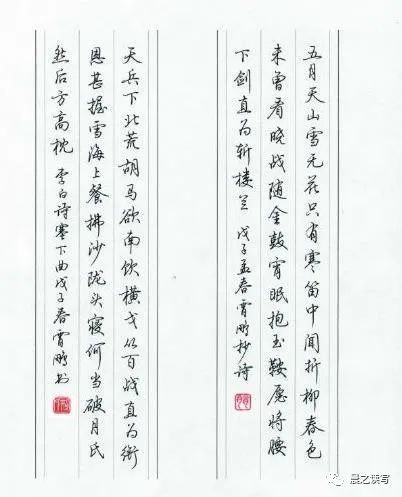 五月天山雪无花只有寒笛中闻折柳春色
未曾看晓战随金鼓宵眠抱玉鞍愿将腰
下剑直为斩楼兰 戊子孟春霄鹏抄诗
天兵下北荒胡马欲南饮横戈从百战直为衔
恩甚握雪海上餐拂沙陇头寝何当破月氏
然后方高枕 李白诗塞下曲戊子春霄鹏书
晨之读写